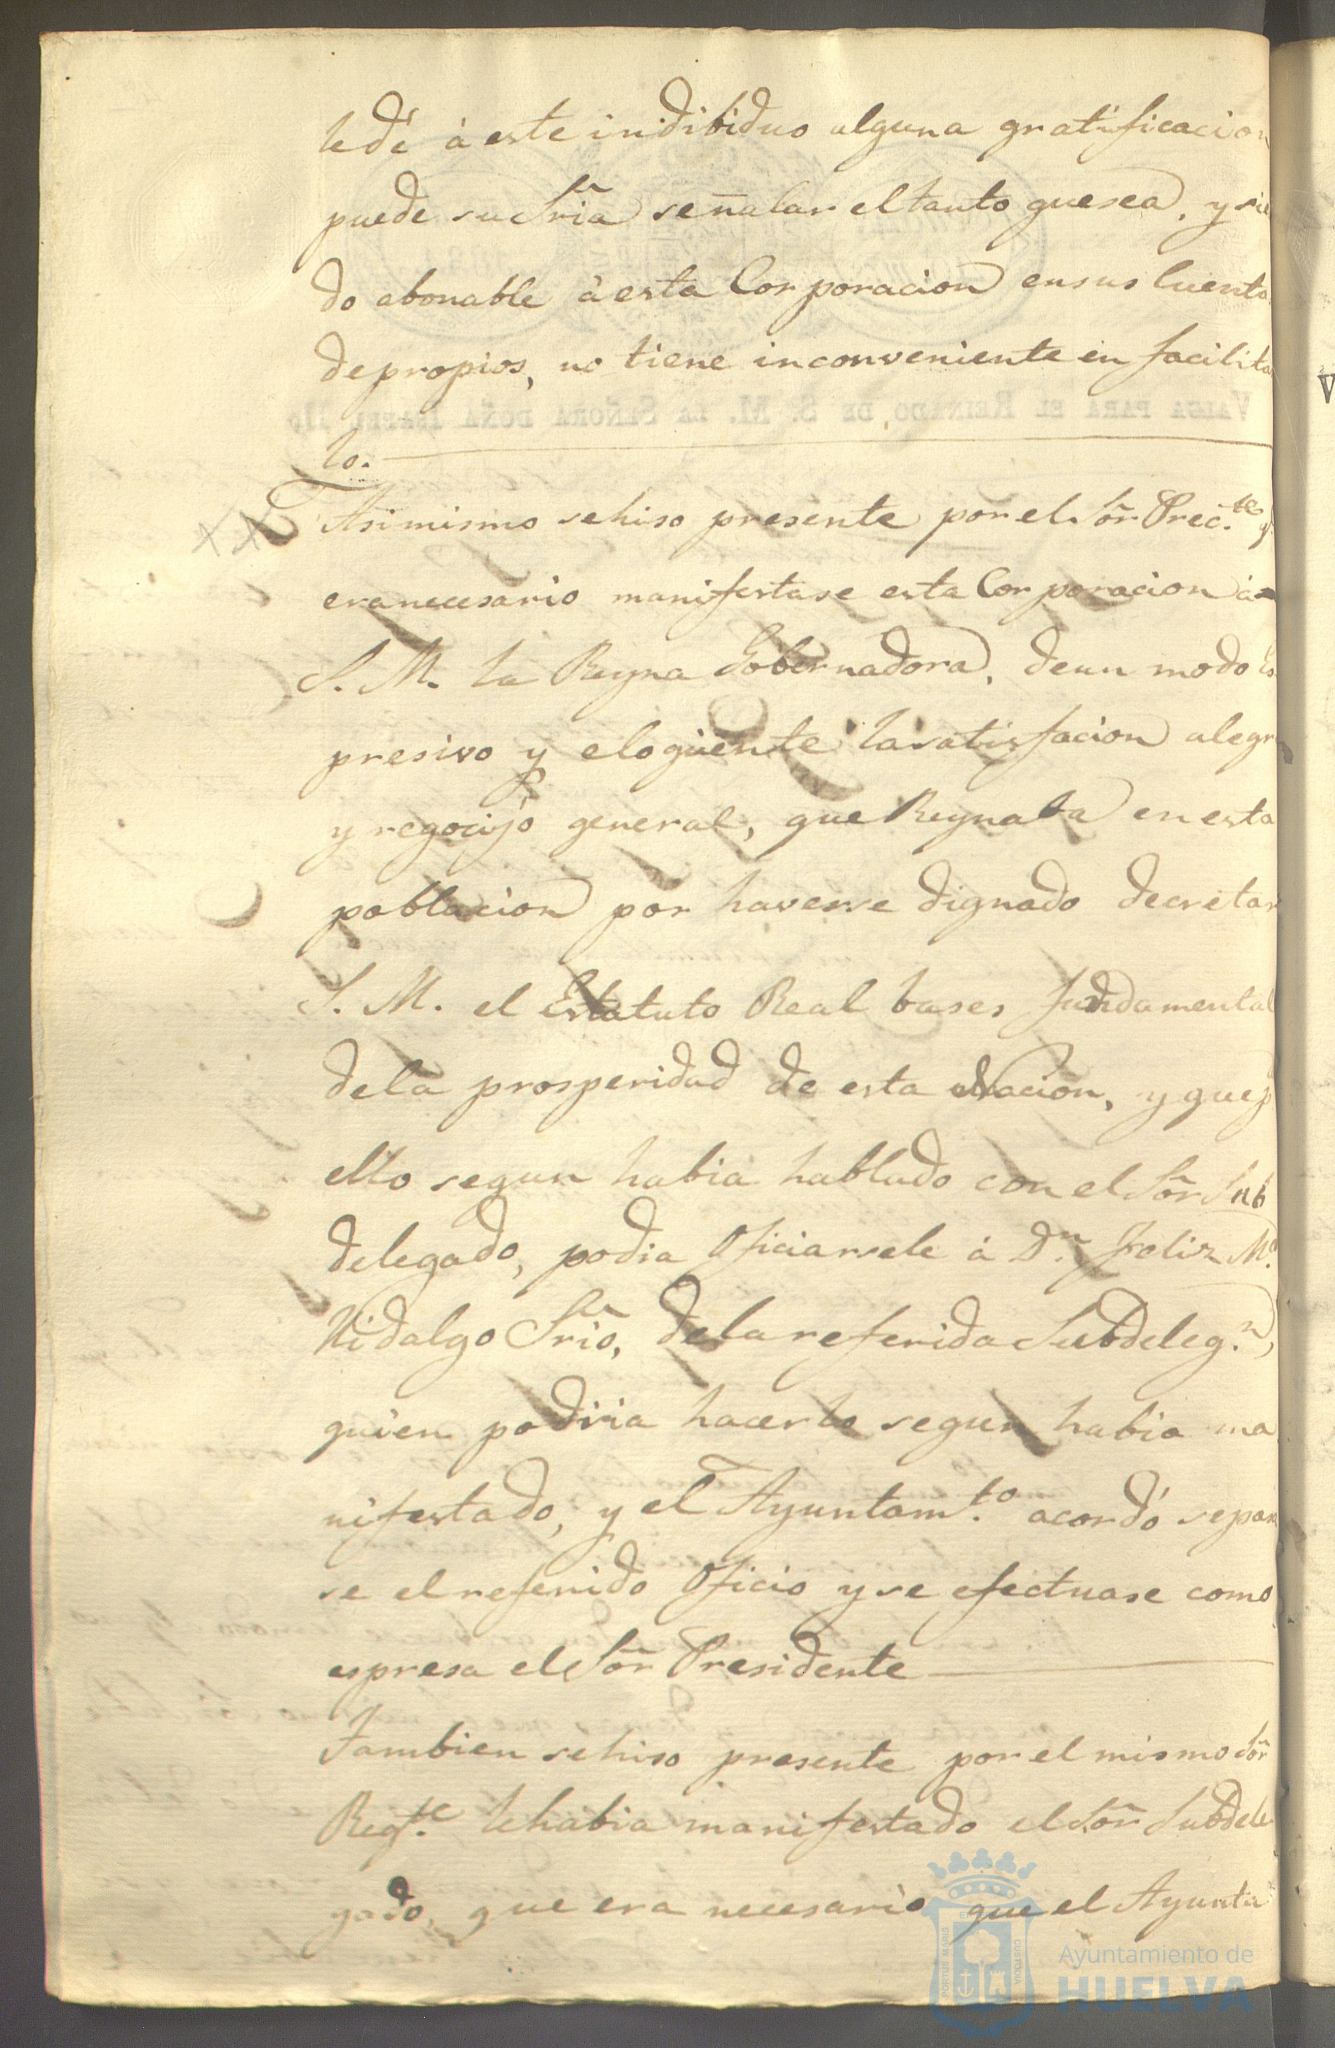 le dé à este indibiduo alguna gratificacion
puede su Sria señalar el tanto que sea, y sien
do abonable à esta Corporacion en sus Cuentas
de propios, no tiene inconveniente en facilitar
lo.
Asimismo se hiso presente por el Sor. Prec.te q.
era necesario manifestase esta Corporacion á
S. M. la Reyna Gobernadora, de un modo Es
presivo y eloqüente la satisfacion alegria
y regocijo general, que Reynaba en esta
poblacion por haverse dignado decretar
S. M. el Estatuto Real bases fundamental
de la prosperidad de esta Nacion, y que p
ello segun habia hablado con el Sor. Sub
delegado, podia Oficiarsele á Dn. Feliz Ma.
Hidalgo Srio, de la referida Subdeleg.n,
quien podria hacerlo segun habia ma
nifestado, y el Ayuntam.to acordó se pasa
se el referido Oficio y se efectuase como
espresa el Sor. Presidente
Tambien se hiso presente por el mismo Sor.
Reg.te le habia manifestado el Sor. Subdele
gado, que era necesario que el Ayunta
VALGA PARA EL REINADO DE S. M. LA SEÑORA DOÑA ISABEL II
Ayuntamiento de
HUELVA